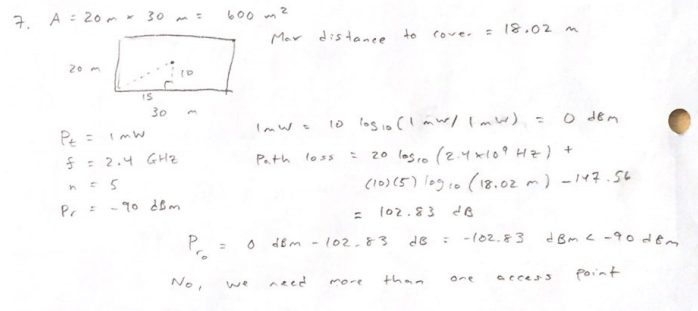 7. A = 20 m x 30 m = 600 m²
Max distance to cover = 18.02 m
20 m
10
15
30 m
Pt = 1 mW
f = 2.4 GHz
n = 5
Pr = -90 dBm
1mW = 10 log10 (1 mW / 1 mW) = 0 dBm
Path loss = 20 log10 (2.4x10⁹ Hz) +
(10)(5) log10 (18.02 m) - 147.56
= 102.83 dB
Pr0 = 0 dBm - 102.83 dB = -102.83 dBm < -90 dBm
No, we need more than one access point